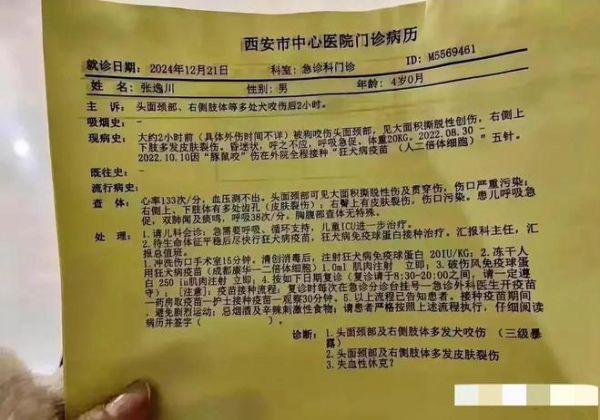 西安市中心医院门诊病历
ID: M5569461
就诊日期: 2024年12月21日 科室: 急诊科门诊
姓名: 张逸川 性别: 男 年龄: 4岁0月
主 诉: 头面颈部、右侧肢体等多处犬咬伤后2小时。
吸烟史: -
现病史: 大约2小时前（具体外伤时间不详）被狗咬伤头面颈部，见大面积撕脱性创伤，右侧上
下肢多发皮肤裂伤。昏迷状，呼之不应，呼吸急促。体重20KG。2022.08.30 -
2022.10.10因“豚鼠咬”伤在外院全程接种“狂犬病疫苗 （人二倍体细胞）”五针。
既往史: -
流行病史:
查 体: 心率133次/分，血压测不出。头面颈部可见大面积撕脱性伤及贯穿伤，伤口严重污染；
右侧上、下肢体有多处齿孔（皮肤裂伤）；右臀上有皮肤裂伤，伤口污染。患儿呼吸急
促，双肺闻及痰鸣，呼吸38次/分。胸腹部查体无特殊。
1.请儿科会诊：急需要呼吸、循环支持，儿童ICU进一步治疗。
2.待生命体征平稳后尽快行狂犬病疫苗，狂犬病免疫球蛋白接种治疗。汇报科主任，汇
报总值班。
1.冲洗伤口手术室15分钟。清创消毒后，注射狂犬病免疫球蛋白 20IU/KG；2.冻干人
用狂犬病疫苗（成都康华一二倍体细胞）1.0ml 肌肉注射 立即；3.破伤风免疫球蛋
白 250 iu肌肉注射 立即；4.按如下日期复诊（复诊请于8:30-20:00之间，请一定遵
守）：[注意]：疫苗接种流程：复诊时每次在急诊分诊台挂号一急诊外科医生开疫苗
一药房取疫苗一护士接种疫苗一观察30分钟。5.以上流程已告知患者。接种疫苗期间
，避免剧烈运动；忌烟酒及辛辣刺激性食物；请患者严格按照上述流程执行，仔细阅读
病历并签字（ ）。
诊断: 1.头面颈部及右侧肢体多发犬咬伤 （三级暴
露）
2.头面颈部及右侧肢体多发皮肤裂伤
3.失血性休克？